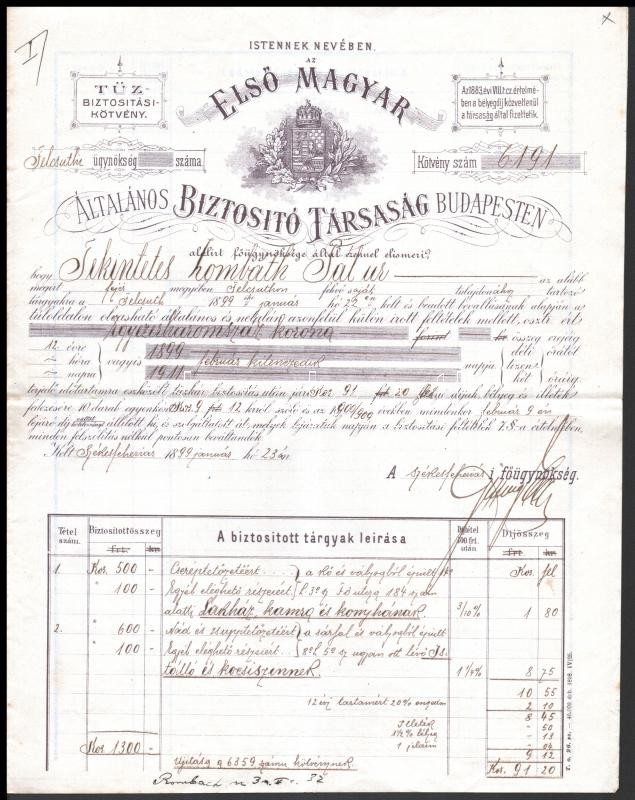 I
×
ISTENNEK NEVÉBEN.
AZ
ELSŐ MAGYAR
TŰZ-
BIZTOSITÁSI-
KÖTVÉNY.
Az 1883. évi VIII. t. cz. értelmé-
ben a bélyegdij közvetlenül
a társaság által fizettetik.
Felcsuthi ügynökség száma.
Kötvény szám 6191
ÁLTALÁNOS BIZTOSITÓ TÁRSASÁG BUDAPESTEN
alulirt főügynöksége által ezennel elismeri,
hogy Tekintetes Lombáth Pál úr az alább
megirt fejér megyében Felcsuthon fekvő saját tulajdonához tartozó
tárgyakra a Felcsuth 1899 évi január hó 22 én kelt és beadott bevallásának alapján a
túloldalon olvasható általános és netalán azonfelül külön irott feltételek mellett, osztr. ért.
Egyezerháromszáz korona forint kr összeg erejéig
12 évre 1899 február kilenczedik déli órától
hóra vagyis napja
napra 1911 óráig
terjedő időtartamra eszközölt tűzkár biztositás után járó Kor. 91 frt. 20 díjak, bélyeg és illeték
fedezésére 10 darab egyenkén Kor. 9 frt 12 krról szóló és az 1900/900 években mindenkor február 9 én
lejáró állitott ki, és szolgáltatott át, melyek lejáratuk napján a biztositási feltételek 7. §-a értelmében,
minden felszólitás nélkül pontosan bevállandók.
Kelt Székesfehérvár 1899 január hó 23 án
A székesfehérvári főügynökség.
Tétel szám. Biztositott összeg frt. kr. A biztositott tárgyak leirása Dijtétel 100 frt. után Dijösszeg frt. kr.
1. Kor. 500 - Cseréptetőzetért a kő és vályogból épült Kor. fil
" 100 - Egyéb éleghető részeiért
alatti Lakház, kamra és konyhának 3/10% 1 80
2. " 600 - Nád és zsuptetőzetért a sárfal és vályogból épült
" 100 - Egyéb éleghető részeiért ugyan ott lévő Is-
tálló és kocsiszinnek 1 1/4% 8 75
10 55
12 évi tartamért 20% engedm 2 10
8 45
Illeték - 50
1 1/2% bélyeg - 13
- 04
9 12
Kor. 1300 - Kor. 91 20
Ujitása a 6359 számu kötvénynek